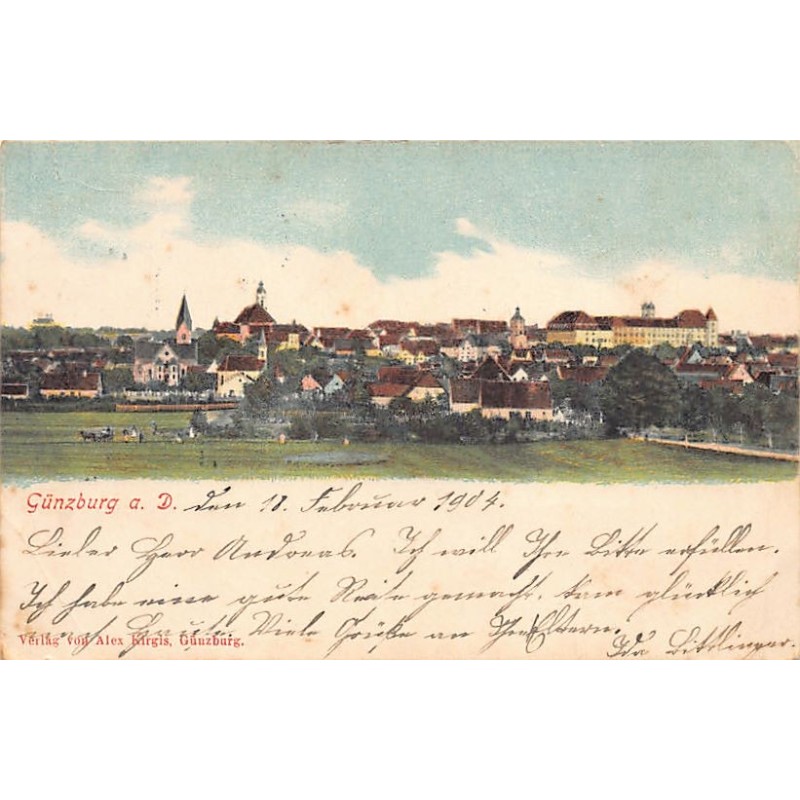 Günzburg a. D. den 18. Februar 1904.
Lieber Herr Andreas. Ich will Ihre Bitte erfüllen.
Ich habe eine gute Reise gemacht, kam glücklich
nach Haus. Viele Grüße an Ihre Eltern.
Verlag von Alex Kirgis, Günzburg.
Ida